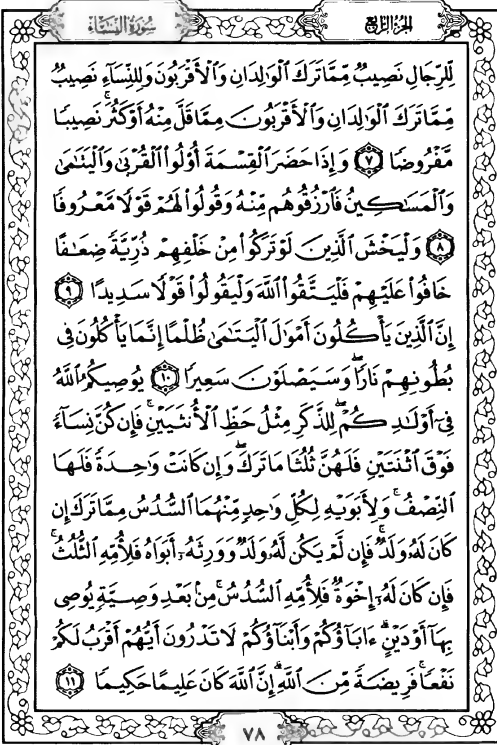 سُورَةُ النِّسَاءِ
الجُزْءُ الرَّابِعُ
لِّلرِّجَالِ نَصِيبٌ مِّمَّا تَرَكَ ٱلْوَٰلِدَانِ وَٱلْأَقْرَبُونَ وَلِلنِّسَآءِ نَصِيبٌ
مِّمَّا تَرَكَ ٱلْوَٰلِدَانِ وَٱلْأَقْرَبُونَ مِمَّا قَلَّ مِنْهُ أَوْ كَثُرَۚ نَصِيبًا
مَّفْرُوضًا ٧ وَإِذَا حَضَرَ ٱلْقِسْمَةَ أُو۟لُوا۟ ٱلْقُرْبَىٰ وَٱلْيَتَٰمَىٰ
وَٱلْمَسَٰكِينُ فَٱرْزُقُوهُم مِّنْهُ وَقُولُوا۟ لَهُمْ قَوْلًا مَّعْرُوفًا
٨ وَلْيَخْشَ ٱلَّذِينَ لَوْ تَرَكُوا۟ مِنْ خَلْفِهِمْ ذُرِّيَّةً ضِعَٰفًا
خَافُوا۟ عَلَيْهِمْ فَلْيَتَّقُوا۟ ٱللَّهَ وَلْيَقُولُوا۟ قَوْلًا سَدِيدًا ٩
إِنَّ ٱلَّذِينَ يَأْكُلُونَ أَمْوَٰلَ ٱلْيَتَٰمَىٰ ظُلْمًا إِنَّمَا يَأْكُلُونَ فِى
بُطُونِهِمْ نَارًاۖ وَسَيَصْلَوْنَ سَعِيرًا ١٠ يُوصِيكُمُ ٱللَّهُ
فِىٓ أَوْلَٰدِكُمْۖ لِلذَّكَرِ مِثْلُ حَظِّ ٱلْأُنثَيَيْنِۚ فَإِن كُنَّ نِسَآءً
فَوْقَ ٱثْنَتَيْنِ فَلَهُنَّ ثُلُثَا مَا تَرَكَۖ وَإِن كَانَتْ وَٰحِدَةً فَلَهَا
ٱلنِّصْفُۚ وَلِأَبَوَيْهِ لِكُلِّ وَٰحِدٍ مِّنْهُمَا ٱلسُّدُسُ مِمَّا تَرَكَ إِن
كَانَ لَهُۥ وَلَدٌۚ فَإِن لَّمْ يَكُن لَّهُۥ وَلَدٌ وَوَرِثَهُۥٓ أَبَوَاهُ فَلِأُمِّهِ ٱلثُّلُثُۚ
فَإِن كَانَ لَهُۥٓ إِخْوَةٌ فَلِأُمِّهِ ٱلسُّدُسُۚ مِنۢ بَعْدِ وَصِيَّةٍ يُوصِى
بِهَآ أَوْ دَيْنٍۗ ءَابَآؤُكُمْ وَأَبْنَآؤُكُمْ لَا تَدْرُونَ أَيُّهُمْ أَقْرَبُ لَكُمْ
نَفْعًاۚ فَرِيضَةً مِّنَ ٱللَّهِۗ إِنَّ ٱللَّهَ كَانَ عَلِيمًا حَكِيمًا ١١
٧٨